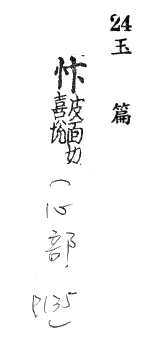 24
玉篇
忭
皮面切
喜
(心部
P135)